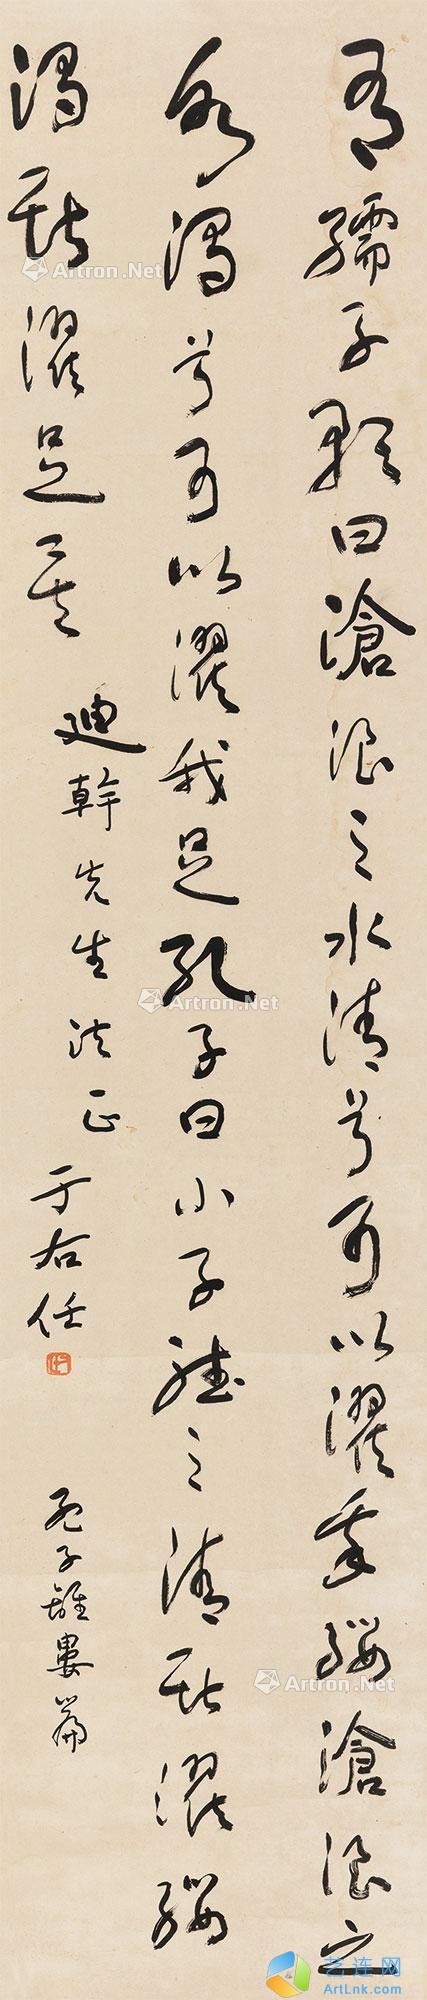 有孺子歌曰滄浪之水清兮可以濯我纓滄浪之
水濁兮可以濯我足孔子曰小子聽之清斯濯纓
濁斯濯足矣
廸幹先生法正
于右任
孟子離婁篇
Artron.Net
Artron.Net
Artron.Net
艺连网
ArtLnk.com